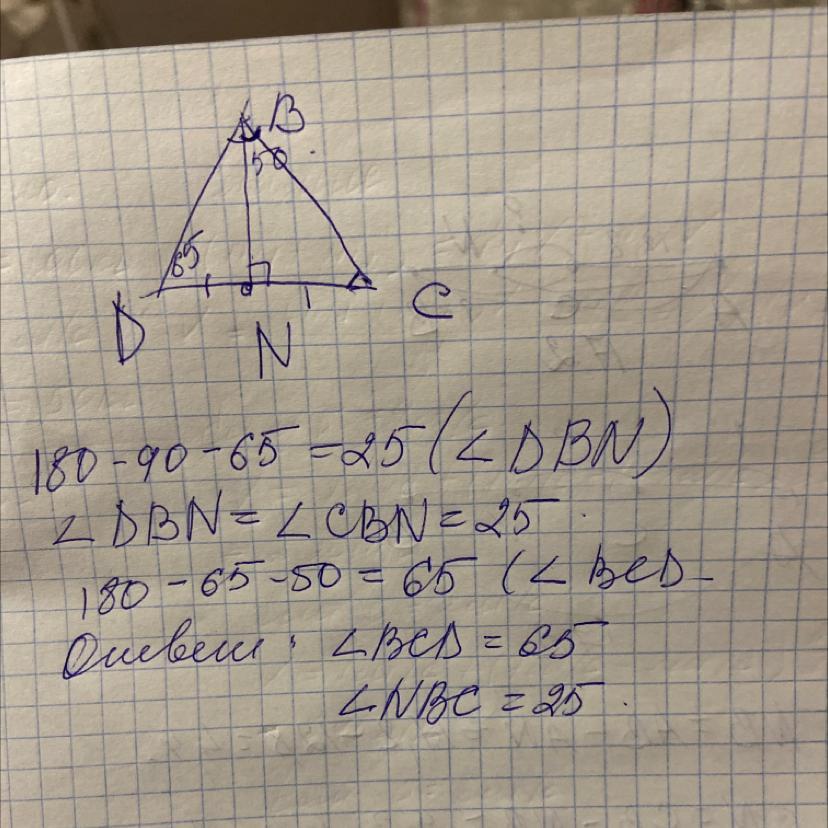 B
50
65
D
N
C
180 - 90 - 65 = 25 (∠DBN)
∠DBN = ∠CBN = 25.
180 - 65 - 50 = 65 (∠BCD
Ответ: ∠BCD = 65
∠NBC = 25.